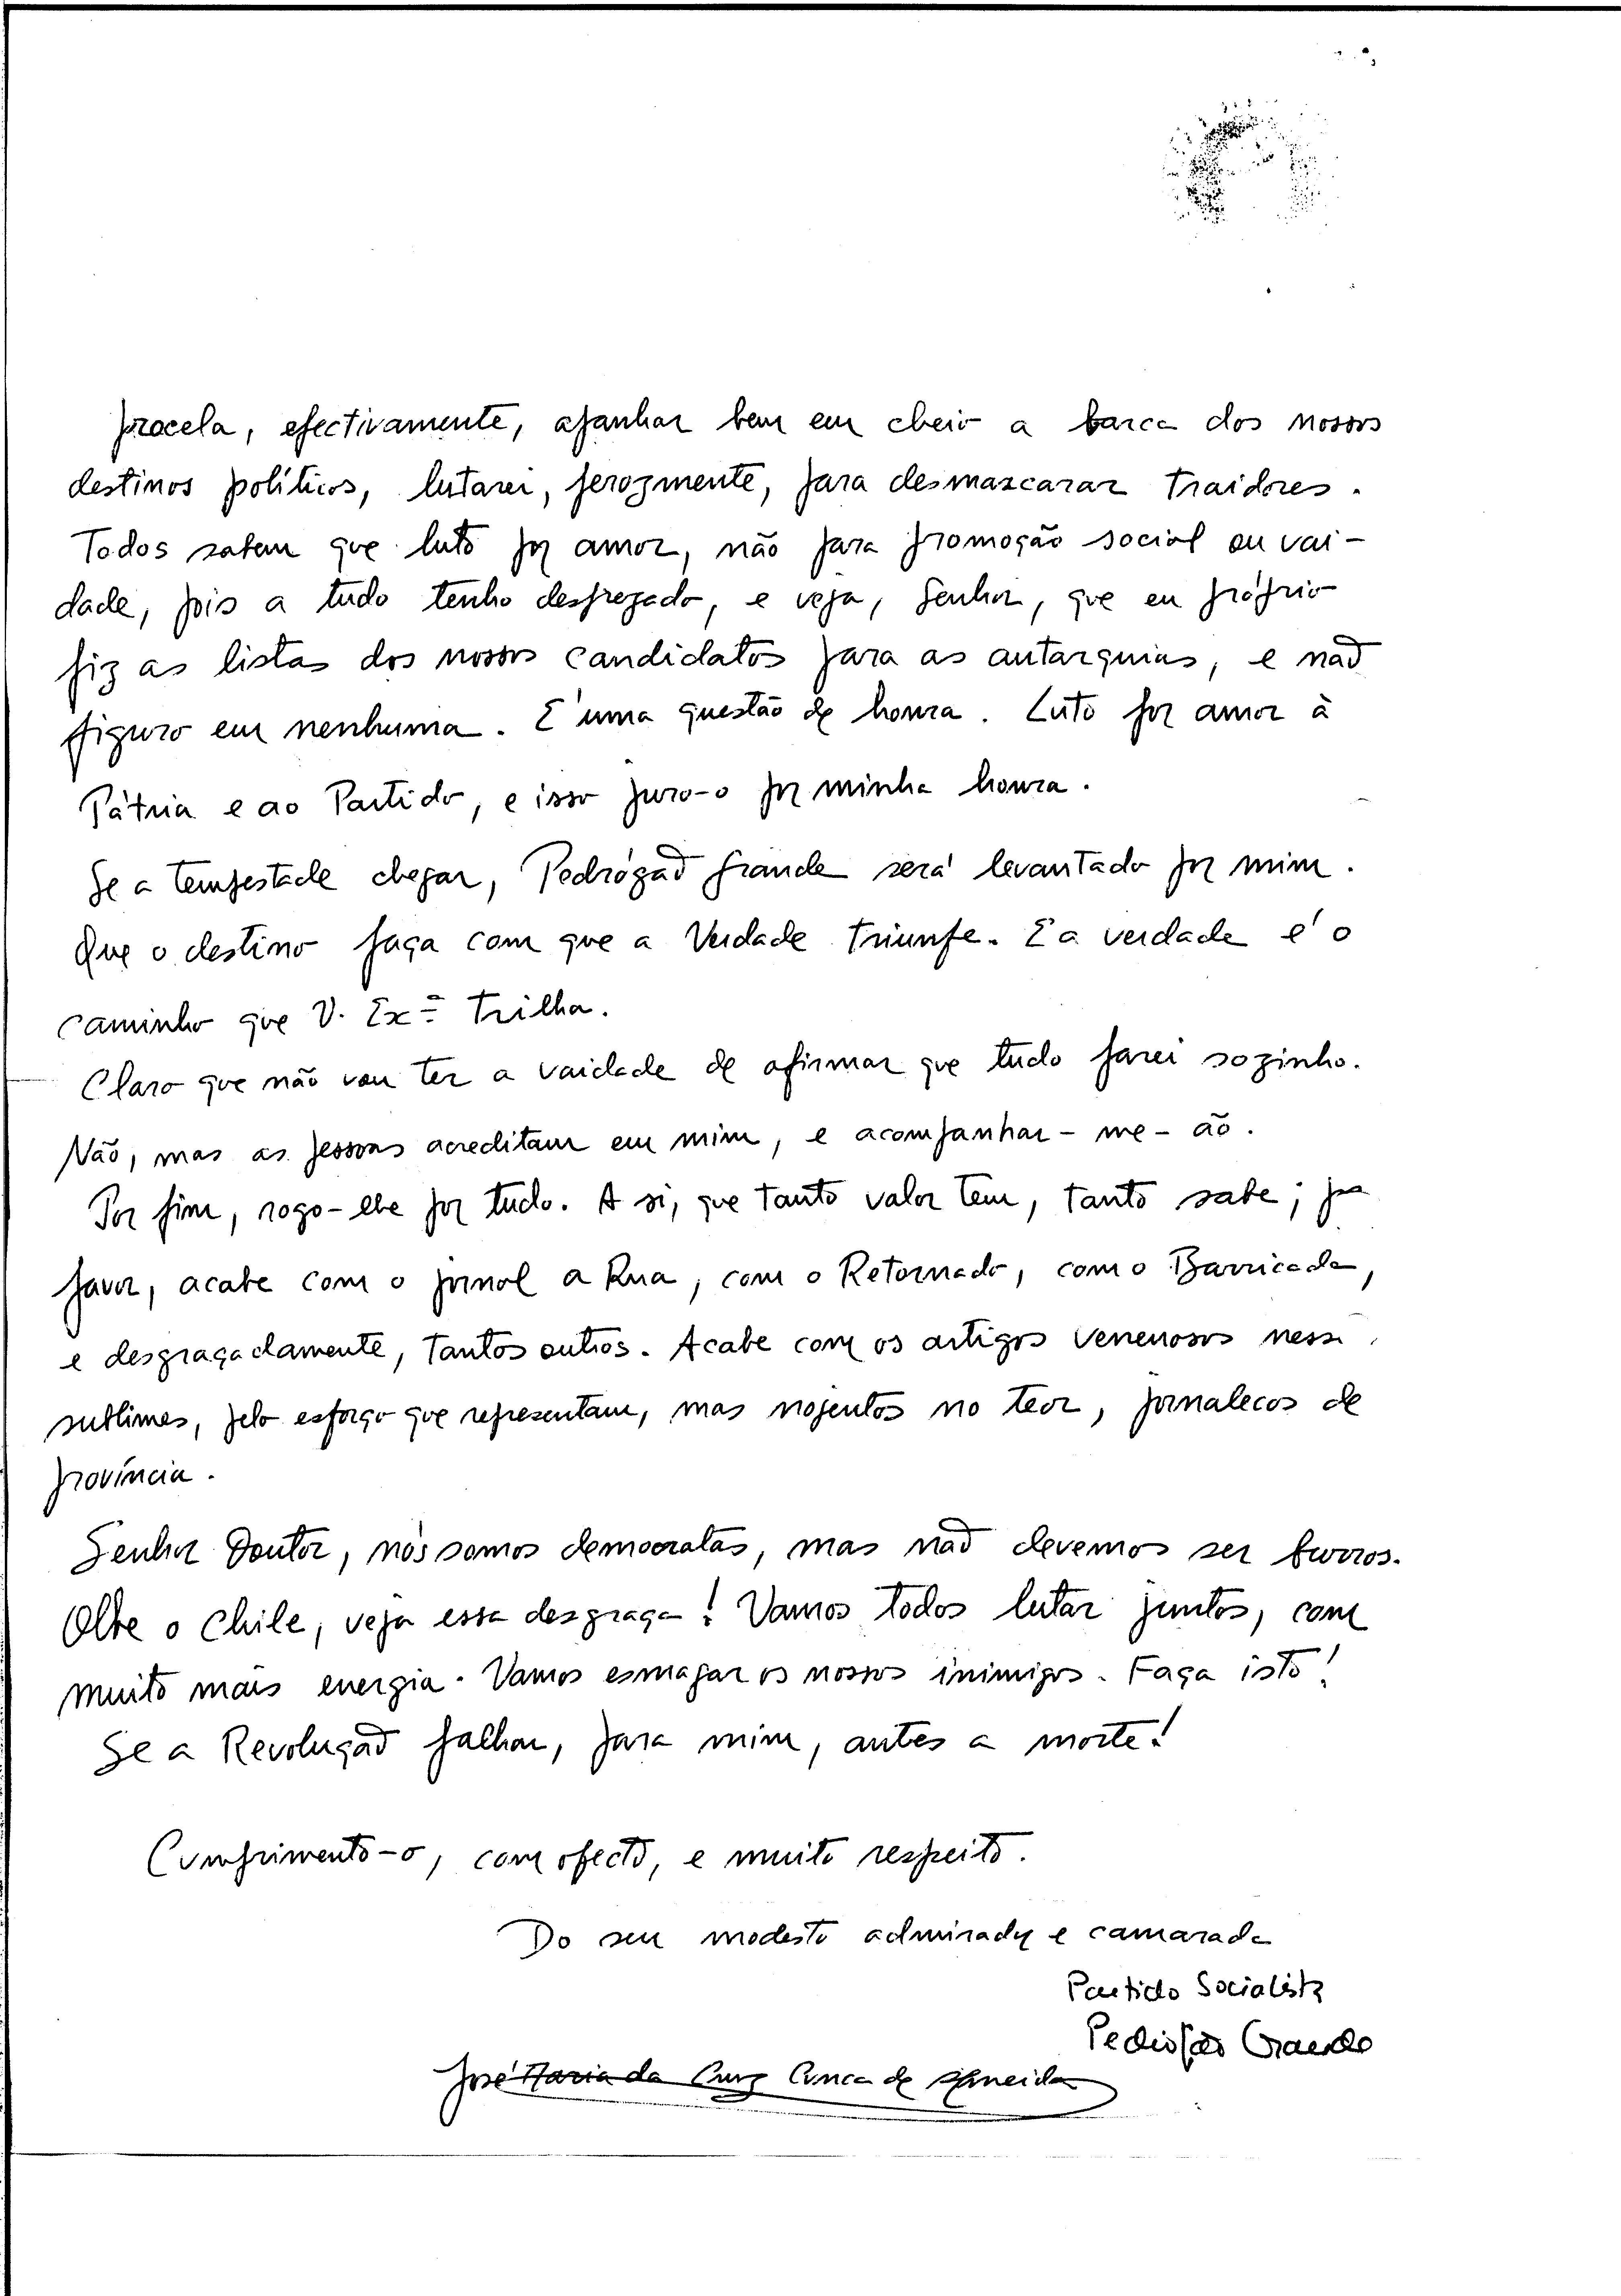 procela, efectivamente, apanhar bem em cheio a barca dos nossos
destinos políticos, lutarei, ferozmente, para desmascarar traidores.
Todos sabem que luto por amor, não para promoção social ou vai-
dade, pois a tudo tenho desprezado, e veja, Senhor, que eu próprio
fiz as listas dos nossos candidatos para as autarquias, e não
figuro em nenhuma. É uma questão de honra. Luto por amor à
Pátria e ao Partido, e isso juro-o por minha honra.
Se a tempestade chegar, Pedrógão Grande será levantado por mim.
Que o destino faça com que a Verdade triunfe. E a verdade é o
caminho que V. Exª trilha.
Claro que não vou ter a vaidade de afirmar que tudo farei sozinho.
Não, mas as pessoas acreditam em mim, e acompanhar-me-ão.
Por fim, rogo-lhe por tudo. A si, que tanto valor tem, tanto sabe; por
favor, acabe com o jornal a Rua, com o Retornado, com o Barricada,
e desgraçadamente, tantos outros. Acabe com os artigos venenosos nesses
sublimes, pelo esforço que representam, mas nojentos no teor, jornalecos de
província.
Senhor Doutor, nós somos democratas, mas não devemos ser burros.
Olhe o Chile, veja essa desgraça! Vamos todos lutar juntos, com
muito mais energia. Vamos esmagar os nossos inimigos. Faça isto!
Se a Revolução falhar, para mim, antes a morte!
Cumprimento-o, com afecto, e muito respeito.
Do seu modesto admirador e camarada
Partido Socialista
Pedrógão Grande
José Maria da Cruz Cunca de Almeida